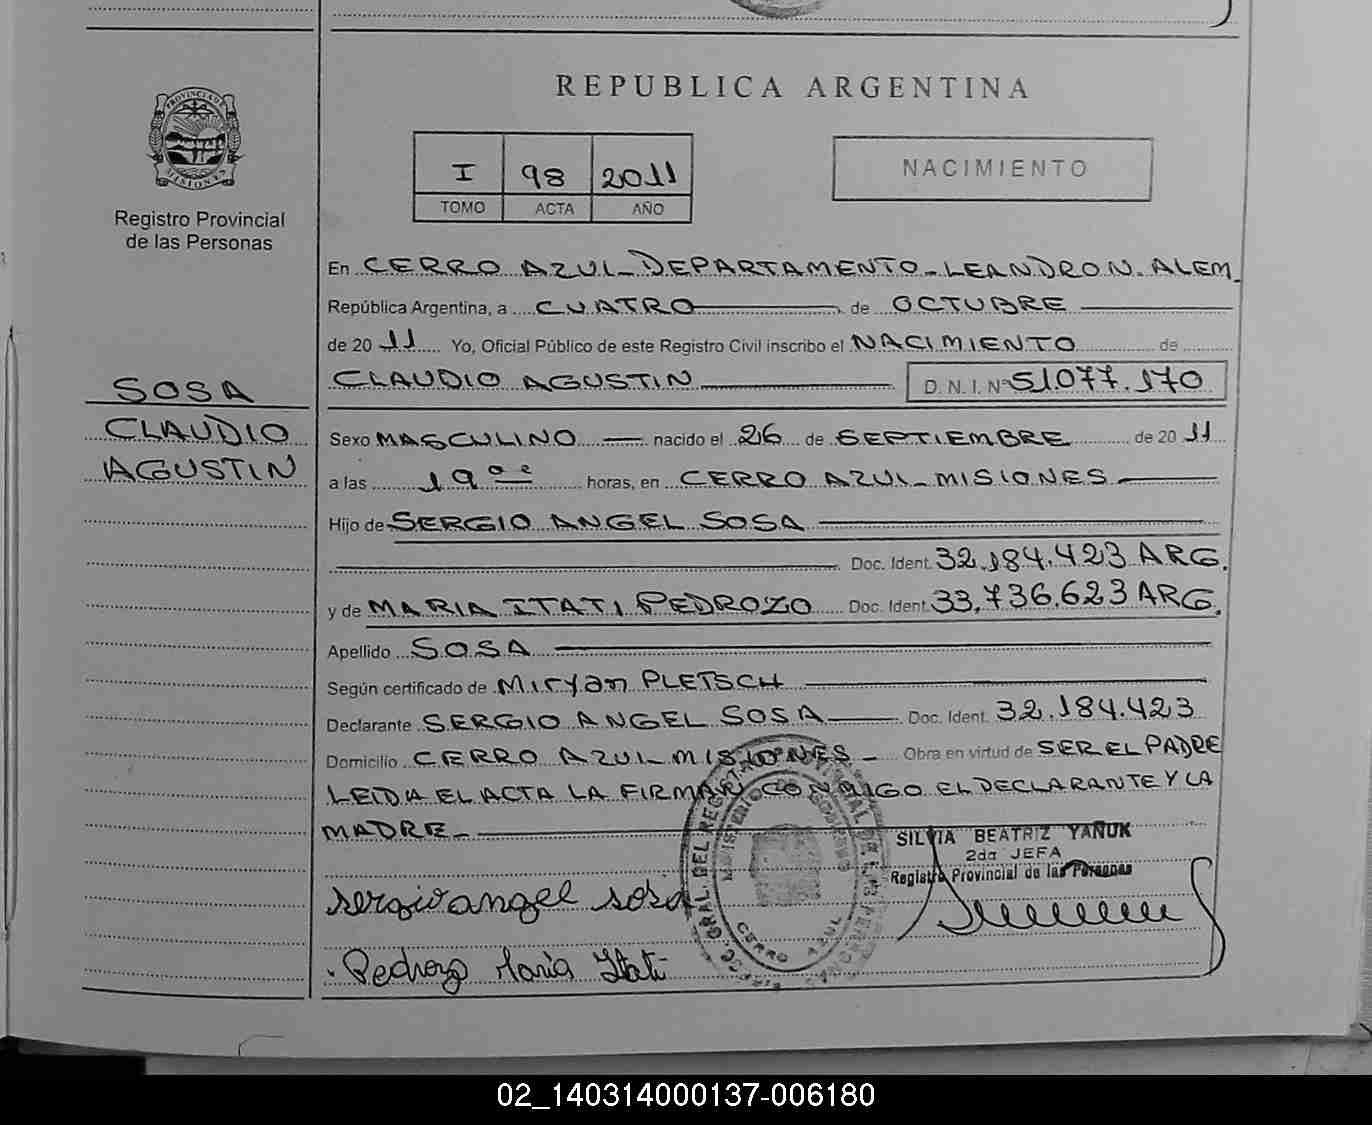 REPUBLICA ARGENTINA
PROVINCIA DE
MISIONES
Registro Provincial
de las Personas
I 98 2011
TOMO ACTA AÑO
NACIMIENTO
En CERRO AZUL - DEPARTAMENTO - LEANDRO N. ALEM
República Argentina, a CUATRO de OCTUBRE
de 20 11 Yo, Oficial Público de este Registro Civil inscribo el NACIMIENTO de
CLAUDIO AGUSTIN D.N.I. Nº 51.077.170
SOSA
CLAUDIO
AGUSTIN
Sexo MASCULINO nacido el 26 de SEPTIEMBRE de 20 11
a las 19 oo horas, en CERRO AZUL - MISIONES
Hijo de SERGIO ANGEL SOSA
Doc. Ident. 32.184.423 ARG.
y de MARIA ITATI PEDROZO Doc. Ident. 33.736.623 ARG.
Apellido SOSA
Según certificado de Miryan PLETSCH
Declarante SERGIO ANGEL SOSA Doc. Ident. 32.184.423
Domicilio CERRO AZUL MISIONES - Obra en virtud de SER EL PADRE
LEIDA EL ACTA LA FIRMAN CONMIGO EL DECLARANTE Y LA
MADRE -
SILVIA BEATRIZ YAÑUK
2da JEFA
Registro Provincial de las Personas
sergio angel sosa
CERRO AZUL
Pedrozo Maria Itati
02_140314000137-006180